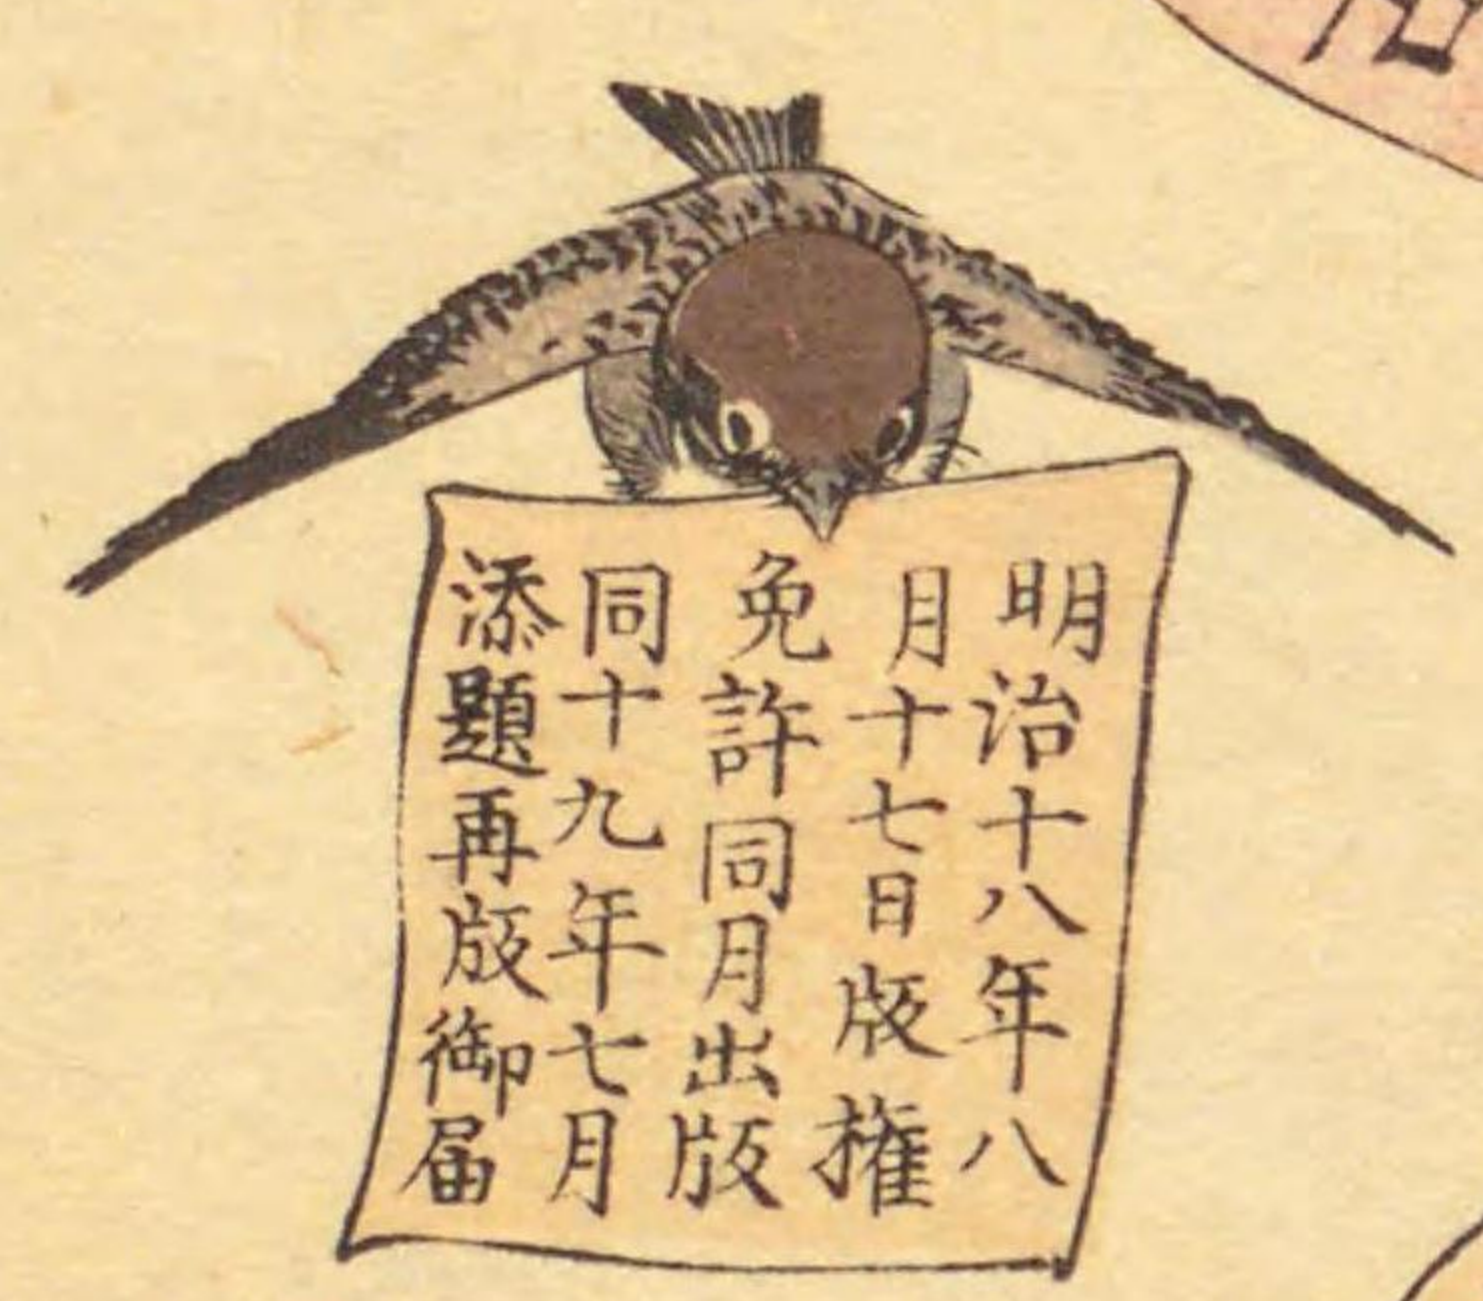 明治十八年八
月十七日版権
免許同月出版
同十九年七月
添題再版御届